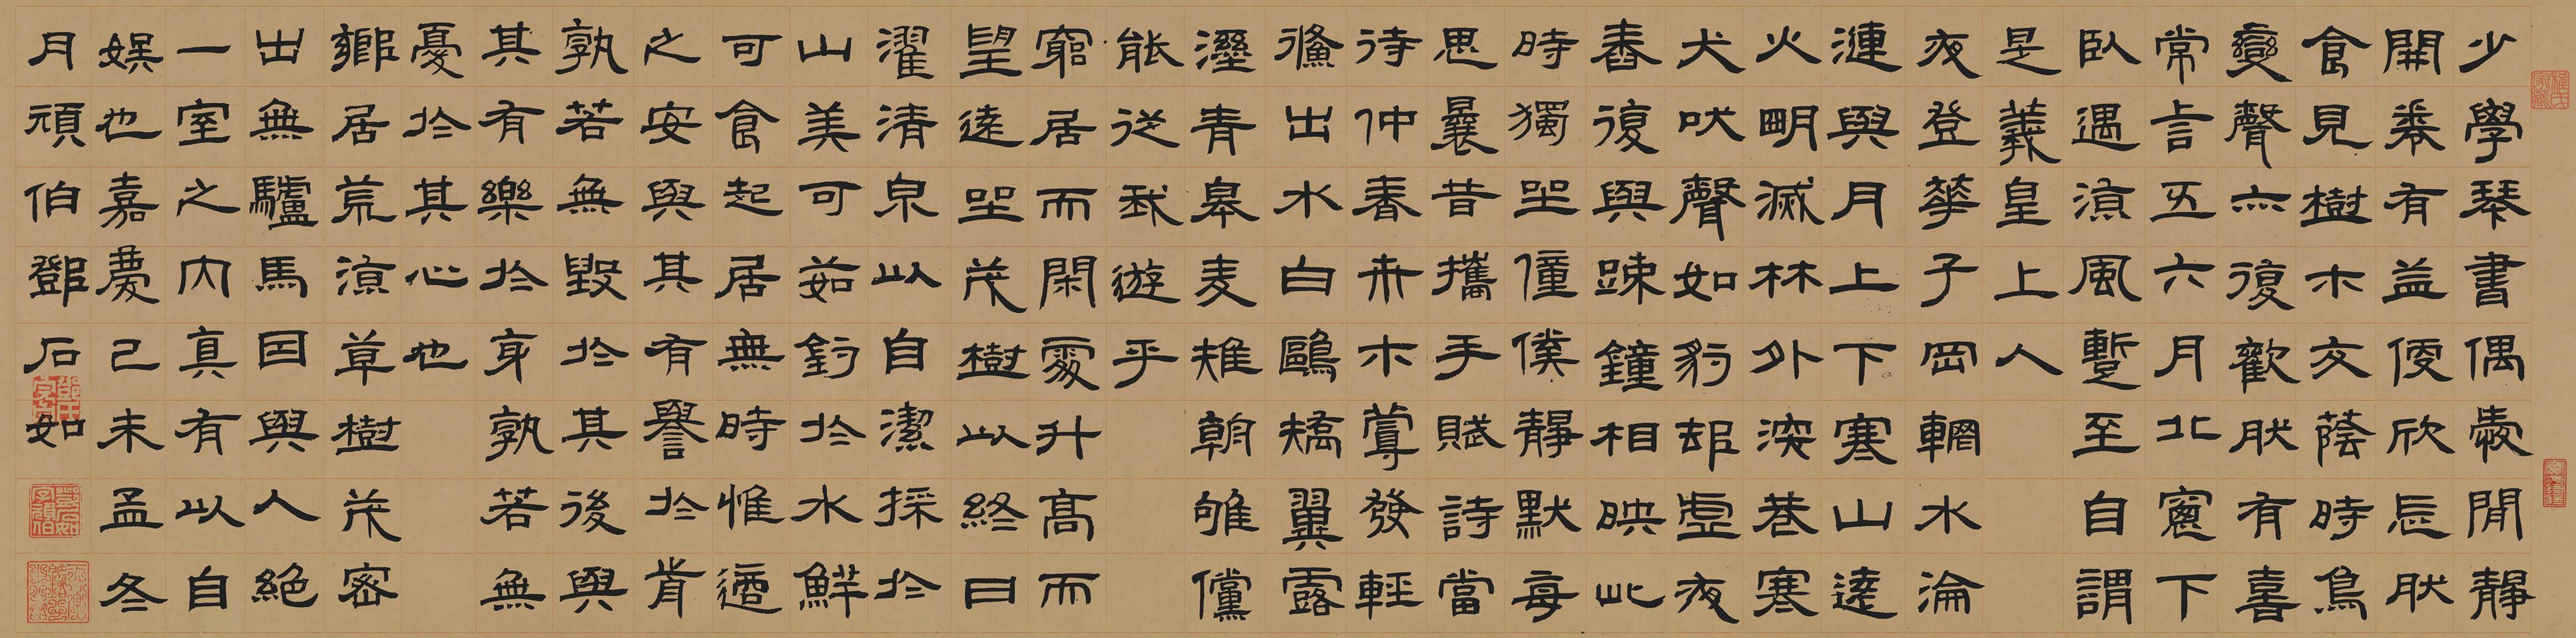 少學琴書偶愛閒靜
開卷有益便欣忘然
食見樹木交蔭時鳥
變聲亦復歡然有喜
常言五六月北窻下
臥遇涼風暫至自謂
是羲皇上人
夜登華子岡輞水淪
漣與月上下寒山遠
火明滅林外深巷寒
犬吠聲如豹邨虛夜
舂復與踈鐘相映此
時獨坐僮僕靜默每
思曩昔攜手賦詩當
待仲春卉木蕚發輕
鯈出水白鷗矯翼露
溼青皋麦雉朝雊儻
能從我遊乎
窮居而閑處升高而
望遠坐茂樹以終日
濯清泉以自潔採於
山美可茹釣於水鮮
可食起居無時惟適
之安與其有譽於前
孰若無毀於其後與
其有樂於身孰若無
憂於其心也
鄉居荒涼草樹茂密
出無驢馬因與人絕
一室之內真有以自
娛也嘉慶己未孟冬
月頑伯鄧石如